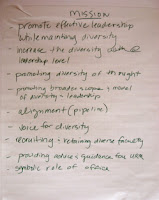 MISSION
- promote effective leadership
while maintaining diversity
- increase the diversity @
leadership level
- promoting diversity of thought
- promoting broader scope + model
of diversity + leadership
- alignment (pipeline)
- voice for diversity
- recruiting + retaining diverse faculty
- providing advice + guidance for
- symbolic role of office